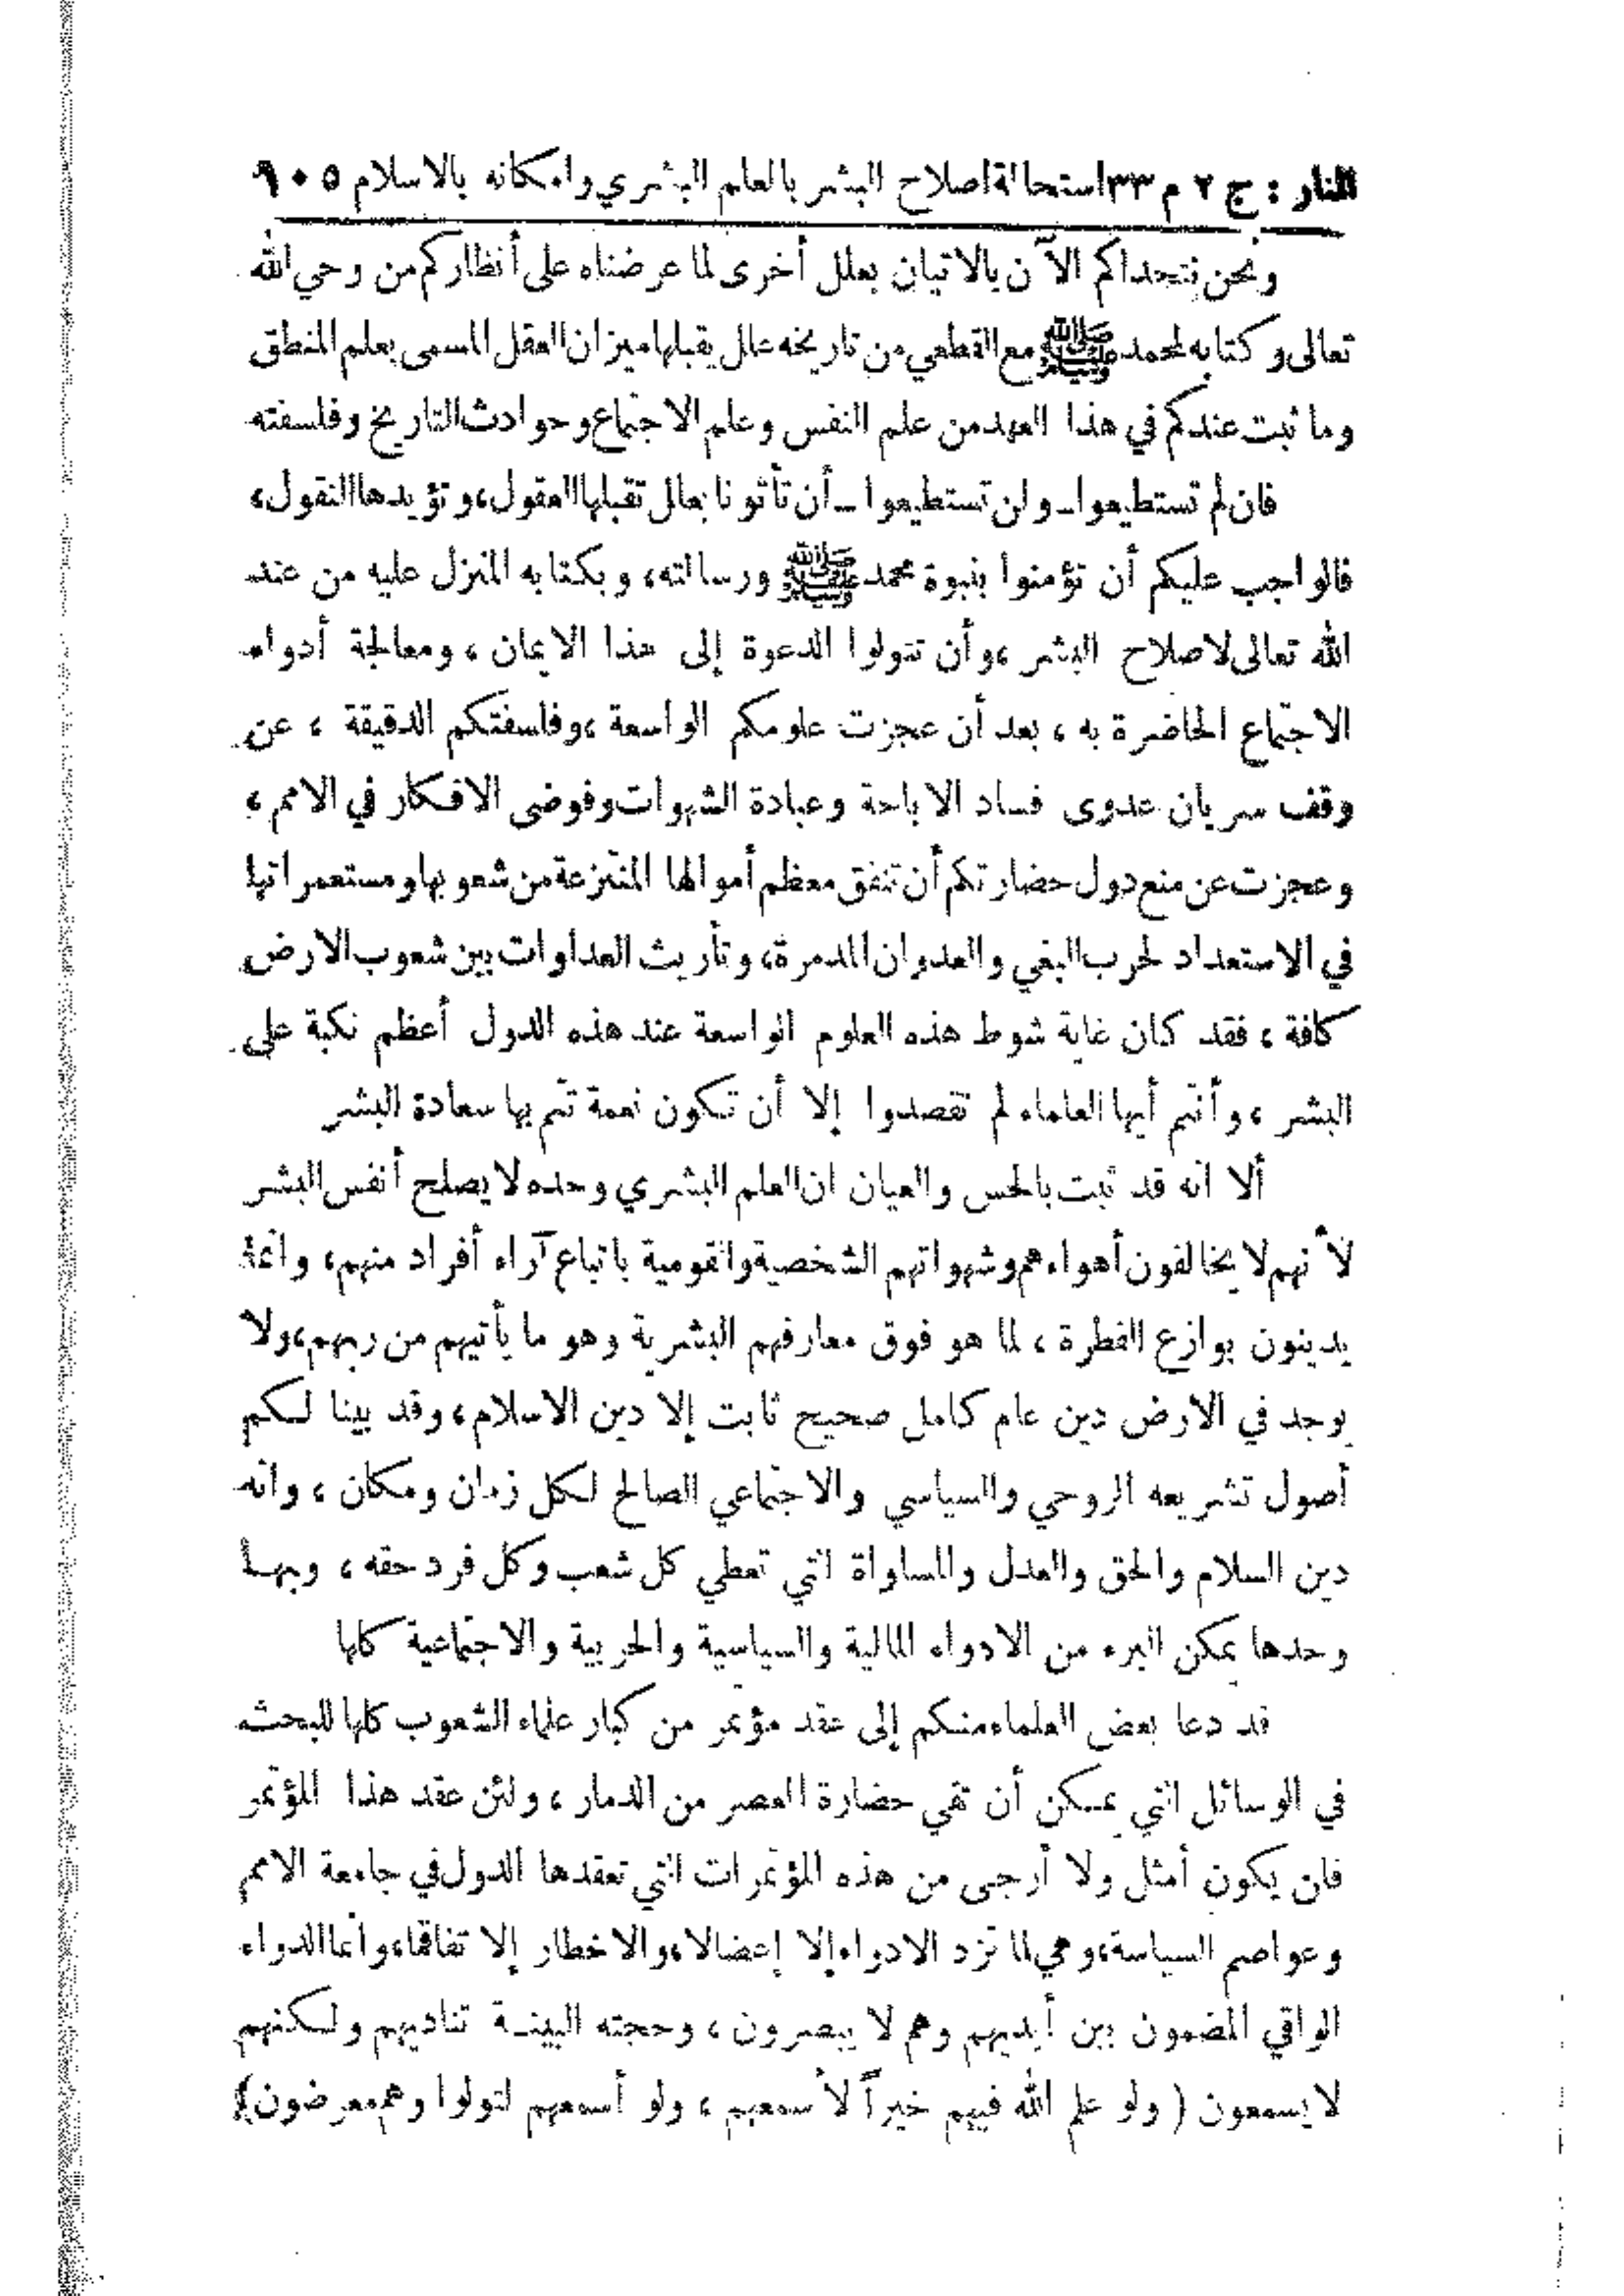 المنار : ج ٢ م ٣٣ استحالة اصلاح البشر بالعلم البشري وامكانه بالاسلام ١٠٥
ونحن نتحداكم الآن بالاتيان بعلل أخرى لما عرضناه على أنظاركم من وحي الله
تعالى وكتابه لمحمد ﷺ مع القطعي من تاريخه علل يقبلها ميزان العقل المسمى بعلم المنطق
وما ثبت عندكم في هذا العهد من علم النفس وعلم الاجتماع وحوادث التاريخ وفلسفته
فان لم تستطيعوا ـ ولن تستطيعوا ـ أن تأتونا بعلل تقبلها العقول، وتؤيدها النقول،
فالواجب عليكم أن تؤمنوا بنبوة محمد ﷺ ورسالته، وبكتابه المنزل عليه من عند
الله تعالى لاصلاح البشر ، وأن تتولوا الدعوة إلى هذا الايمان ، ومعالجة أدواء
الاجتماع الحاضرة به ، بعد أن عجزت علومكم الواسعة ، وفلسفتكم الدقيقة ، عن
وقف سريان عدوى فساد الاباحة وعبادة الشهوات وفوضى الافكار في الامم ،
وعجزت عن منع دول حضارتكم أن تنفق معظم أموالها المنتزعة من شعوبها ومستعمراتها
في الاستعداد لحرب البغي والعدوان المدمرة، وتأريث العداوات بين شعوب الارض
كافة ، فقد كان غاية شوط هذه العلوم الواسعة عند هذه الدول أعظم نكبة على
البشر ، وأنتم أيها العلماء لم تقصدوا إلا أن تكون نعمة تتم بها سعادة البشر
ألا انه قد ثبت بالحس والعيان ان العلم البشري وحده لا يصلح أنفس البشر
لأنهم لا يخالفون أهواءهم وشهواتهم الشخصية والقومية باتباع آراء أفراد منهم، وانما
يدينون بوازع الفطرة ، لما هو فوق معارفهم البشرية وهو ما يأتيهم من ربهم، ولا
يوجد في الارض دين عام كامل صحيح ثابت إلا دين الاسلام، وقد بينا لكم
أصول تشريعه الروحي والسياسي والاجتماعي الصالح لكل زمان ومكان ، وانه
دين السلام والحق والعدل والمساواة التي تعطي كل شعب وكل فرد حقه ، وبها
وحدها يمكن البرء من الادواء المالية والسياسية والحربية والاجتماعية كلها
قد دعا بعض العلماء منكم إلى عقد مؤتمر من كبار علماء الشعوب كلها للبحث
في الوسائل التي يمكن أن تقي حضارة العصر من الدمار ، ولئن عقد هذا المؤتمر
فلن يكون أمثل ولا أرجى من هذه المؤتمرات التي تعقدها الدول في جامعة الامم
وعواصم السياسة، وهي لما تزد الادواء إلا إعضالا، والاخطار إلا تفاقما، وانما الدواء
الواقي المضمون بين أيديهم وهم لا يبصرون ، وحجته البينة تناديهم ولكنهم
لا يسمعون ( ولو علم الله فيهم خيراً لأسمعهم ، ولو أسمعهم لتولوا وهم معرضون )